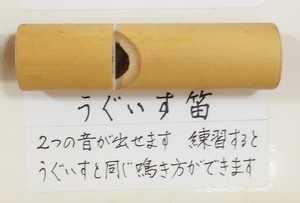 うぐいす笛
2つの音が出せます 練習すると
うぐいすと同じ鳴き方ができます